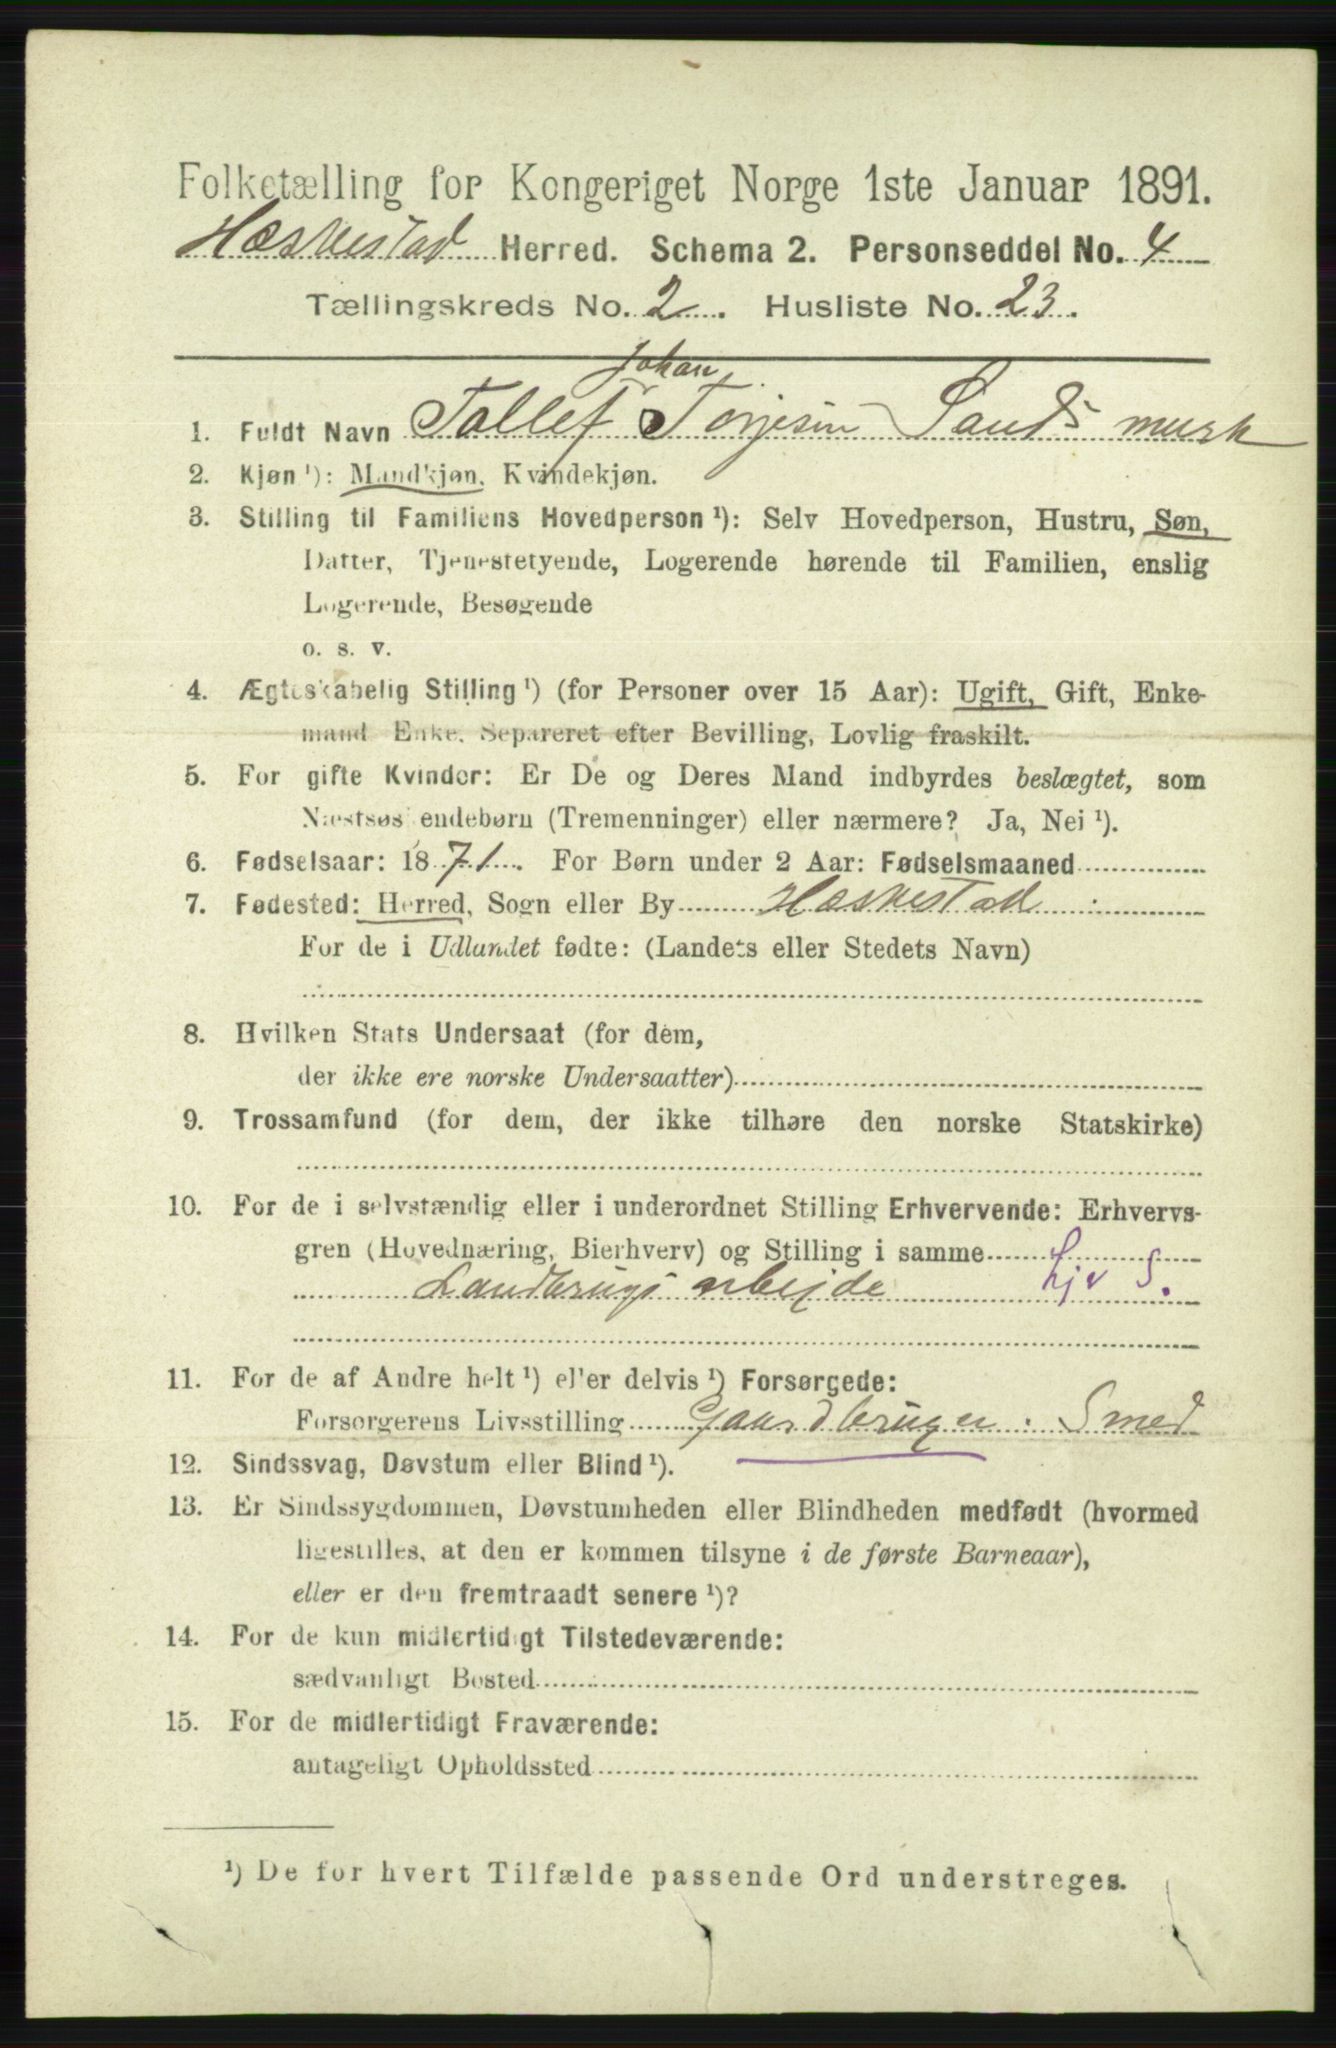 Folketælling for Kongeriget Norge 1ste Januar 1891.
Hæskestad Herred. Schema 2. Personseddel No. 4
Tællingskreds No. 2. Husliste No. 23.
Johan
1. Fuldt Navn Tallef Torjesen Sandsmark
2. Kjøn ¹): Mandkjøn, Kvindekjøn.
3. Stilling til Familiens Hovedperson ¹): Selv Hovedperson, Hustru, Søn,
Datter, Tjenestetyende, Logerende hørende til Familien, enslig
Logerende, Besøgende
o. s. v.
4. Ægteskabelig Stilling ¹) (for Personer over 15 Aar): Ugift, Gift, Enke-
mand, Enke, Separeret efter Bevilling, Lovlig fraskilt.
5. For gifte Kvinder: Er De og Deres Mand indbyrdes beslægtet, som
Næstsøskendebørn (Tremenninger) eller nærmere? Ja, Nei ¹).
6. Fødselsaar: 1871. For Børn under 2 Aar: Fødselsmaaned
7. Fødested: Herred, Sogn eller By Hæskestad
For de i Udlandet fødte: (Landets eller Stedets Navn)
8. Hvilken Stats Undersaat (for dem,
der ikke ere norske Undersaatter)
9. Trossamfund (for dem, der ikke tilhøre den norske Statskirke)
10. For de i selvstændig eller i underordnet Stilling Erhvervende: Erhvervs-
gren (Hovednæring, Bierhverv) og Stilling i samme
Landbrugsarbejde hjv S.
11. For de af Andre helt ¹) eller delvis ¹) Forsørgede:
Forsørgerens Livsstilling Gaardbruger. Smed
12. Sindssvag, Døvstum eller Blind ¹).
13. Er Sindssygdommen, Døvstumheden eller Blindheden medfødt (hvormed
ligestilles, at den er kommen tilsyne i de første Barneaar),
eller er den fremtraadt senere ¹)?
14. For de kun midlertidigt Tilstedeværende:
sædvanligt Bosted
15. For de midlertidigt Fraværende:
antageligt Opholdssted
¹) De for hvert Tilfælde passende Ord understreges.